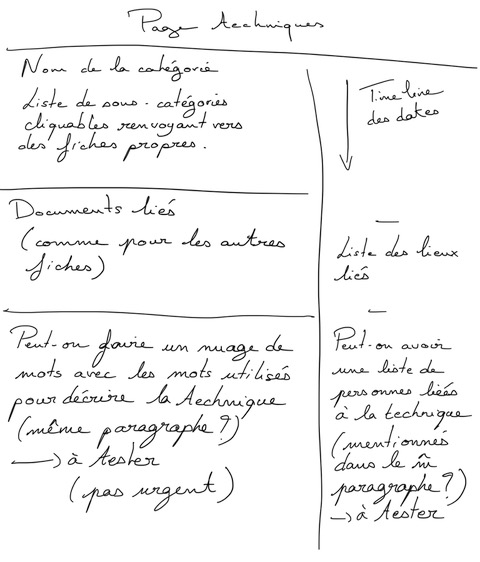 Page Techniques
Nom de la catégorie
Liste de sous-catégories
cliquables renvoyant vers
des fiches propres.
Documents liés
(comme pour les autres
fiches)
Peut-on faire un nuage de
mots avec les mots utilisés
pour décrire la technique
(même paragraphe ?)
→ à tester
(pas urgent)
Time line
des dates
Liste des lieux
liés
Peut-on avoir
une liste de
personnes liées
à la technique
(mentionnés
dans le m̃
paragraphe ?)
→ à tester